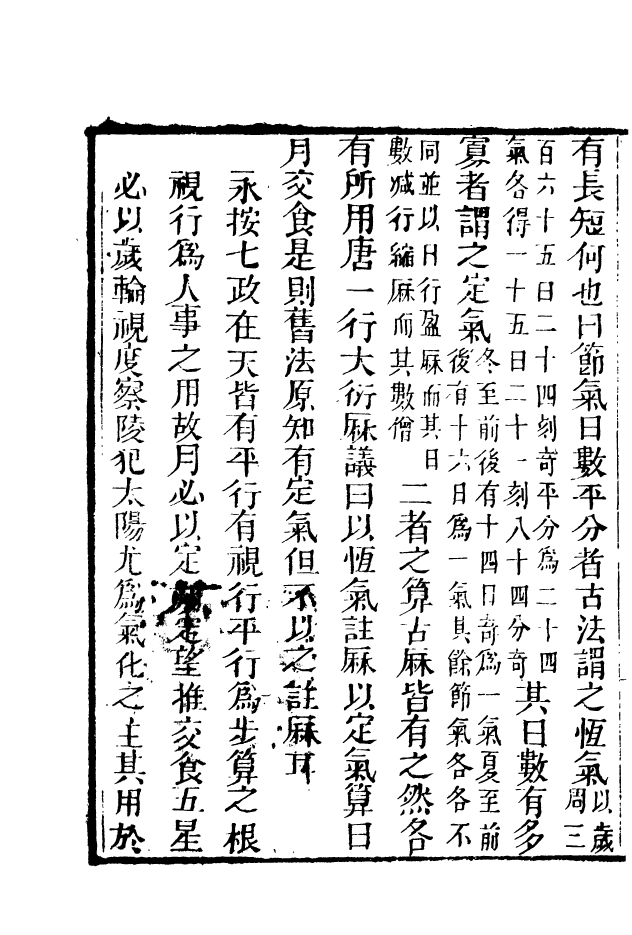 有長短何也曰節氣日數平分者古法謂之恆氣以歲周三
百六十五日二十四刻奇平分爲二十四氣各得一十五日二十一刻八十四分奇其日數有多
寡者謂之定氣冬至前後有十四日奇爲一氣夏至前後有十六日爲一氣其餘節氣各各不
同並以日行盈厤而其日數減行縮厤而其數僧二者之算古厤皆有之然各
有所用唐一行大衍厤議曰以恆氣註厤以定氣算日
月交食是則舊法原知有定氣但不以之註厤耳
永按七政在天皆有平行有視行平行爲步算之根
視行爲人事之用故月必以定定望推交食五星
必以歲輪視度察陵犯太陽尤爲氣化之主其用於